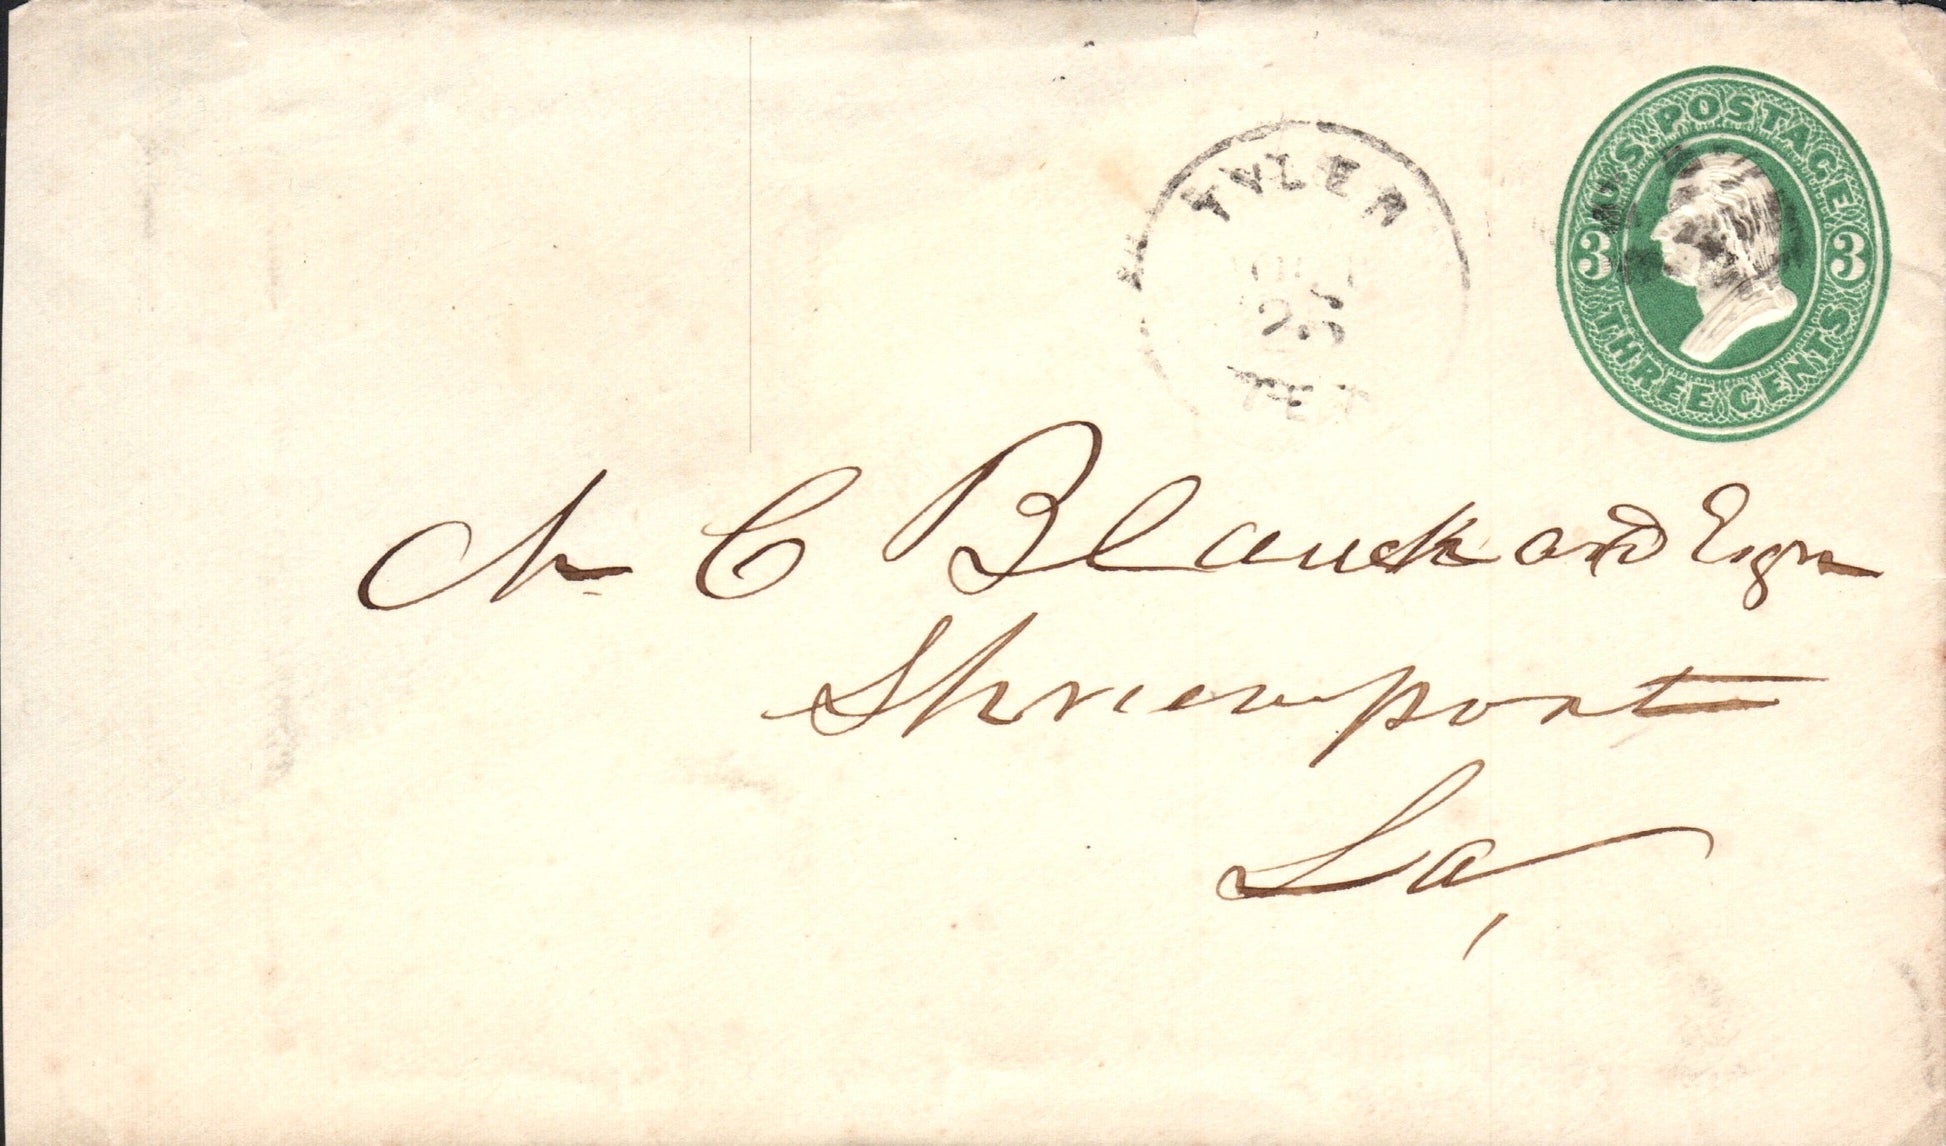 U.S. POSTAGE
3 3
THREE CENTS
TYLER
TEX
N C Blanchard Esqr
Shreveport
La,